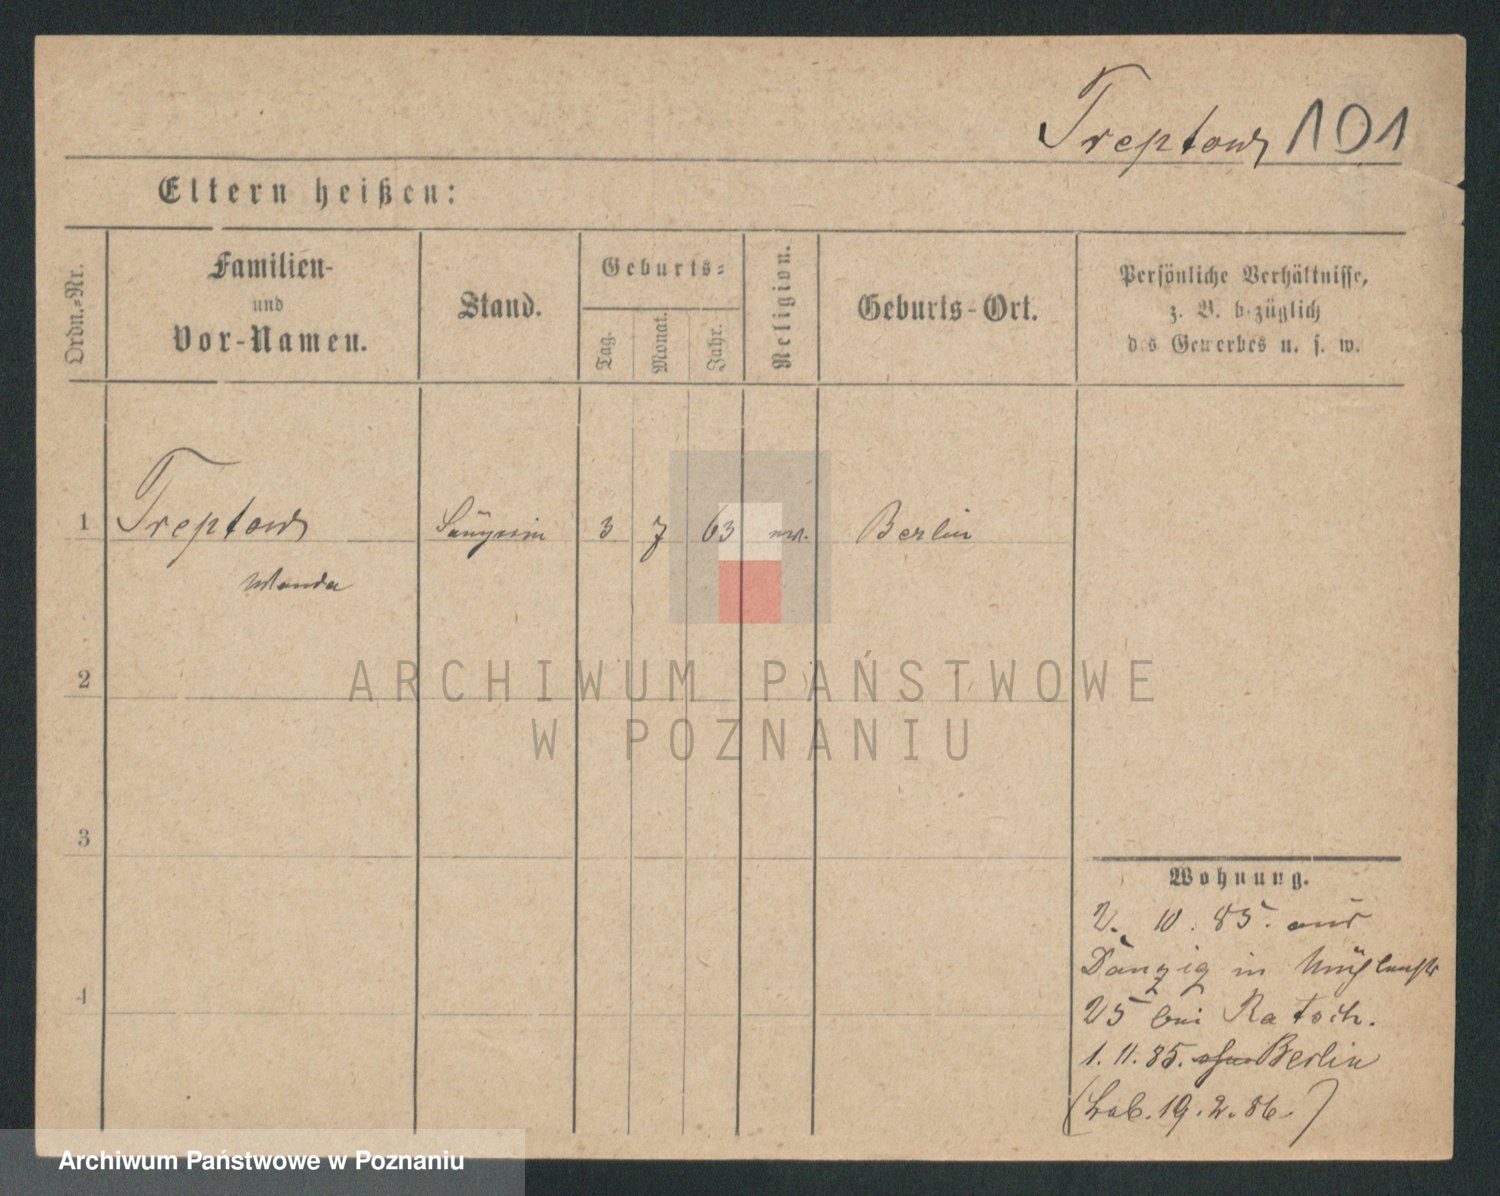 Treptow 101
Eltern heißen:
Ordn.-Nr.
Familien-
und
Vor-Namen.
Stand.
Geburts-
Tag.
Monat.
Jahr.
Religion.
Geburts-Ort.
Persönliche Verhältnisse,
z. B. bezüglich
des Gewerbes u. s. w.
1 Treptow Sängerin 3 7 63 Berlin
Wanda
2
3
4
Wohnung.
2. 10. 85. aus
Danzig in Mühlenstr
25 bei Ratsch.
1. 11. 85. Berlin
19. 2. 86.)
ARCHIWUM PAŃSTWOWE
W POZNANIU
Archiwum Państwowe w Poznaniu